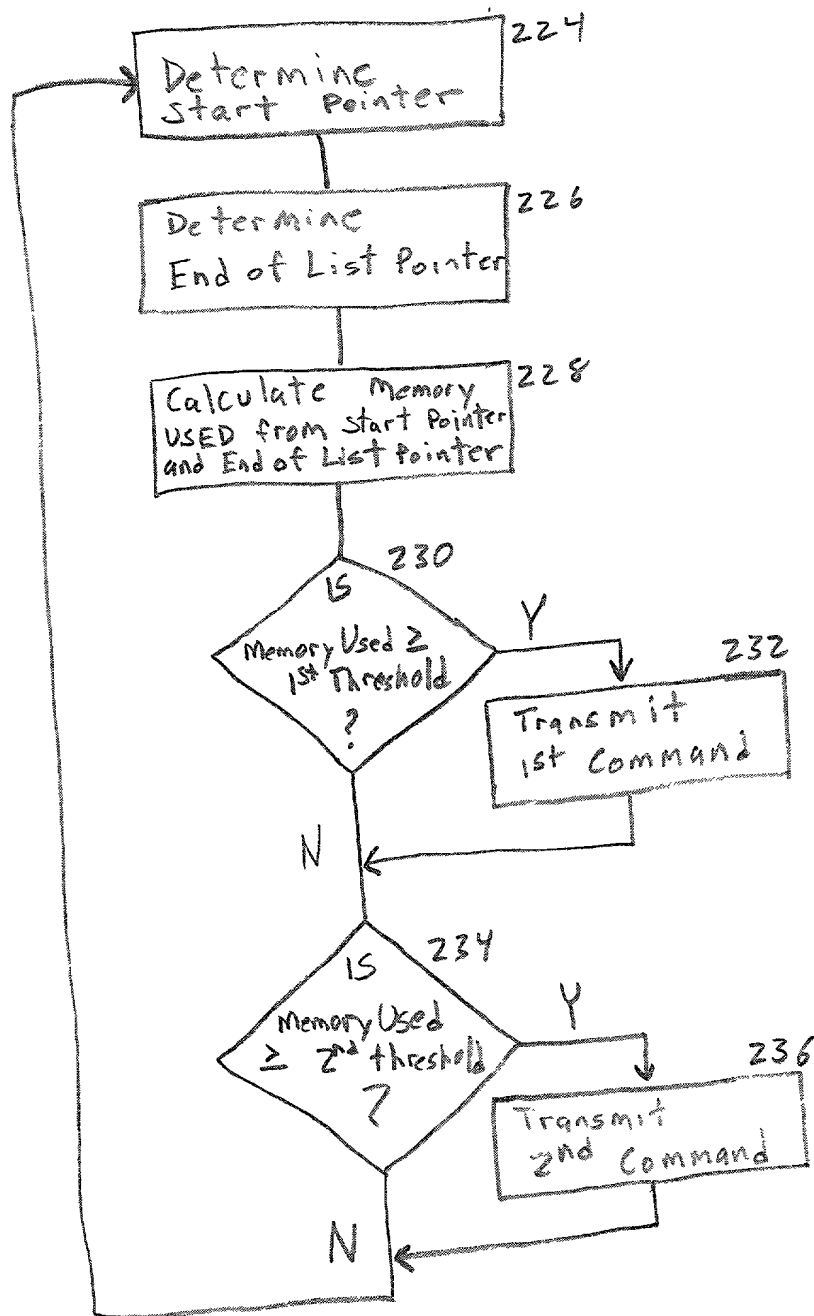 224
Determine
Start Pointer
226
Determine
End of List Pointer
228
Calculate Memory
USED from Start Pointer
and End of List Pointer
230
IS
Memory Used ≥
1st Threshold
?
Y
232
Transmit
1st Command
N
234
IS
Memory Used
≥ 2nd threshold
?
Y
236
Transmit
2nd Command
N